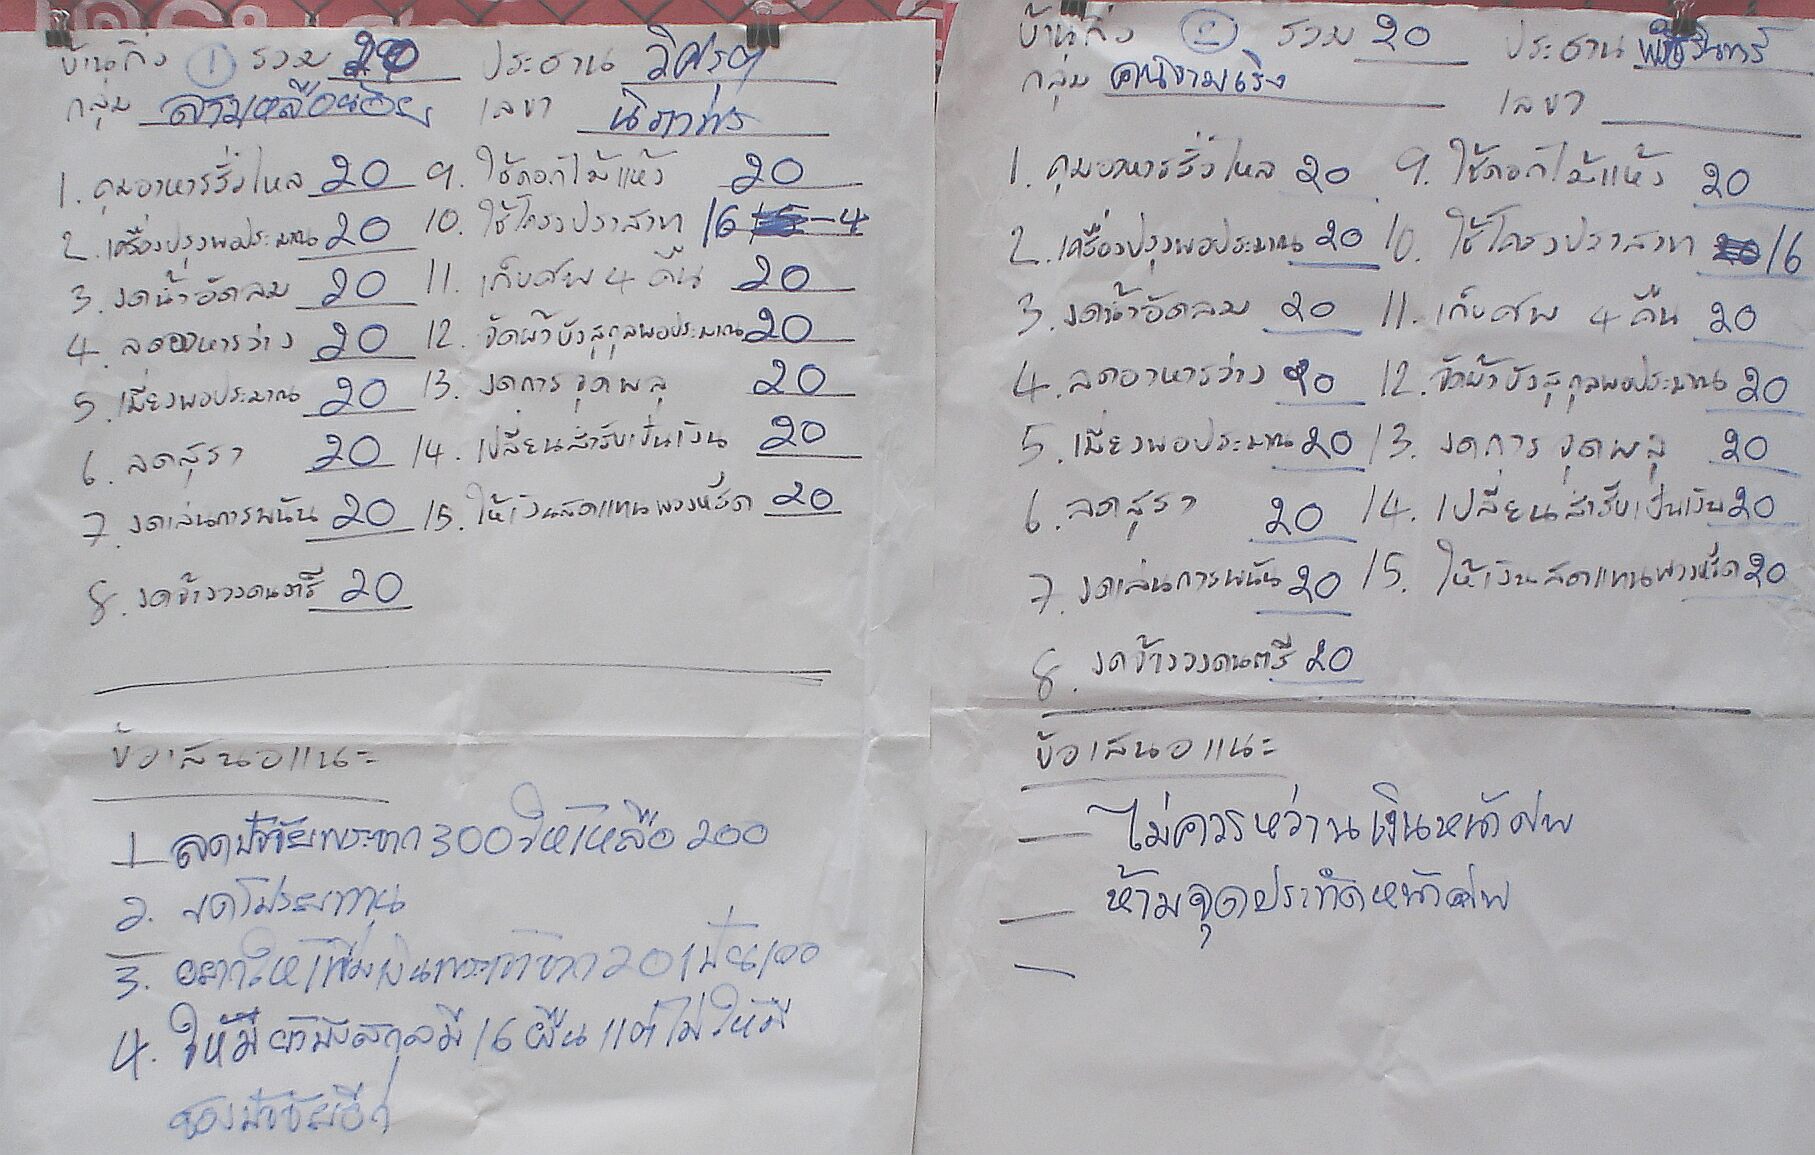 บ้านกิ่ง ① รวม 20 ประธาน
กลุ่ม สามเหลือน้อย เลขา นิภาพร
1. คุมอาหารรั่วไหล 20
2. เครื่องปรุงพอประมาณ 20
3. งดน้ำอัดลม 20
4. ลดอาหารว่าง 20
5. เมี่ยงพอประมาณ 20
6. ลดสุรา 20
7. งดเล่นการพนัน 20
8. งดจ้างวงดนตรี 20
9. ใช้ดอกไม้แห้ง 20
10. ใช้โครงปราสาท 16 - 4
11. เก็บศพ 4 คืน 20
12. จัดผ้าบังสุกุลพอประมาณ 20
13. งดการจุดพลุ 20
14. เปลี่ยนสำรับเป็นเงิน 20
15. ให้เงินสดแทนพวงหรีด 20
ข้อเสนอแนะ
1 ลดปัจจัยพระจาก 300 ให้เหลือ 200
2. งดโปรยทาน
3. อยากให้เพิ่มเงิน 20
4. ให้มีผ้าบังสกุลมี 16 ผืน แต่ไม่ให้มี
ซองปัจจัยอีก
บ้านกิ่ง ② รวม 20 ประธาน พัชรินทร์
กลุ่ม คนงามเริง เลขา
1. คุมอาหารรั่วไหล 20
2. เครื่องปรุงพอประมาณ 20
3. งดน้ำอัดลม 20
4. ลดอาหารว่าง 20
5. เมี่ยงพอประมาณ 20
6. ลดสุรา 20
7. งดเล่นการพนัน 20
8. งดจ้างวงดนตรี 20
9. ใช้ดอกไม้แห้ง 20
10. ใช้โครงปราสาท 16
11. เก็บศพ 4 คืน 20
12. จัดผ้าบังสุกุลพอประมาณ 20
13. งดการจุดพลุ 20
14. เปลี่ยนสำรับเป็นเงิน 20
15. ให้เงินสดแทนพวงหรีด 20
ข้อเสนอแนะ
— ไม่ควรหว่านเงินหน้าศพ
— ห้ามจุดประทัดหน้าศพ
—